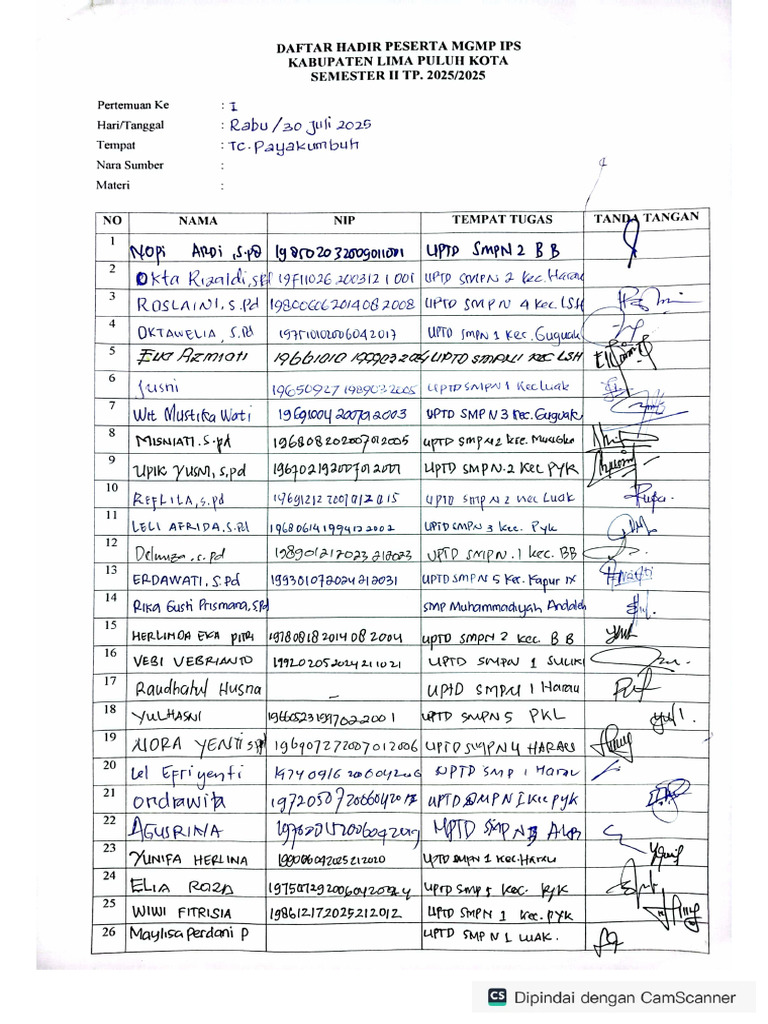 DAFTAR HADIR PESERTA MGMP IPS
KABUPATEN LIMA PULUH KOTA
SEMESTER II TP. 2025/2025
Pertemuan Ke : I
Hari/Tanggal : Rabu/30 Juli 2025
Tempat : TC. Payakumbuh
Nara Sumber :
Materi :
NO NAMA NIP TEMPAT TUGAS TANDA TANGAN
1 Nopi Ardi, S.Pd 198502032009011001 UPTD SMPN 2 B B
2 Okta Rizaldi, SPd UPTD SMPN 2 Kec. Harau
3 ROSLAINI, S.Pd 198006062014082008 UPTD SMPN 4 Kec. LSH
4 OKTAWELIA, S.Pd 197510102006042017 UPTD SMPN 1 Kec. Guguak
5 Eva Azmiati 19661010 UPTD SMPN 1 KEC LSH
6 Jusni 19650927 1989032005 UPTD SMPN 1 Kec Luak
7 Wit Mustika Wati 196910042007012003 UPTD SMPN 3 Kec. Guguak
8 MISNIATI. S.pd 196808202007012005 UPTD SMPN 2 Kec.
9 UPIK YUSNI, S.pd 196702192007012001 UPTD SMPN. 2 Kec PYK
10 REFLILA, S.pd UPTD SMPN 2 Kec Luak
11 LELI AFRIDA, S.Pd 196806141994122002 UPTD SMPN 3 Kec. Pyk
12 Delmiza, S.pd 198901212023212023 UPTD SMPN. 1 Kec. BB
13 ERDAWATI, S.Pd 199301072024212031 UPTD SMPN 5 Kec. Kapur IX
14 Rika Gusti Prismana, S.Pd SMP Muhammadiyah Andaleh
15 HERLINDA EKA PITRI 197808182014082004 UPTD SMPN 2 Kec. B B
16 VEBI VEBRIANTO 199202052024211021 UPTD SMPN 1 SULIKI
17 Raudhatul Husna – UPTD SMPN 1 Harau
18 YULHASNI UPTD SMPN 5 PKL
19 NORA YENTI S.Pd 196907272007012006 UPTD SMPN 4 HARAU
20 Lel Efriyenti 19740916 2006042006 UPTD SMP 1 Harau
21 ondrawita 197205072006042012 UPTD SMPN 1 Kec pyk
22 AGUSRINA UPTD SMPN 3
23 YUNIFA HERLINA UPTD SMPN 1 Kec. Harau
24 ELIA ROZA UPTD SMP 5 Kec. Pyk
25 WIWI FITRISIA 198612172025212012 UPTD SMPN 1 Kec. PYK
26 Maylisa Perdani P UPTD SMP N 1 LUAK.
CS Dipindai dengan CamScanner